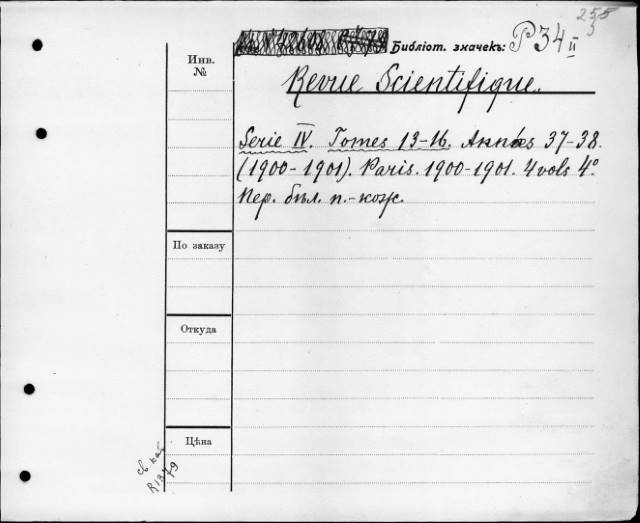 255
3
Библіот. значекъ: P 34 II
Инв.
№
Revue Scientifique.
Serie IV. Tomes 13-16. Années 37-38.
(1900-1901). Paris. 1900-1901. 4 vols 4°
Пер. бѣл. п.-кож.
По заказу
Откуда
Цѣна
св. кат.
R1379